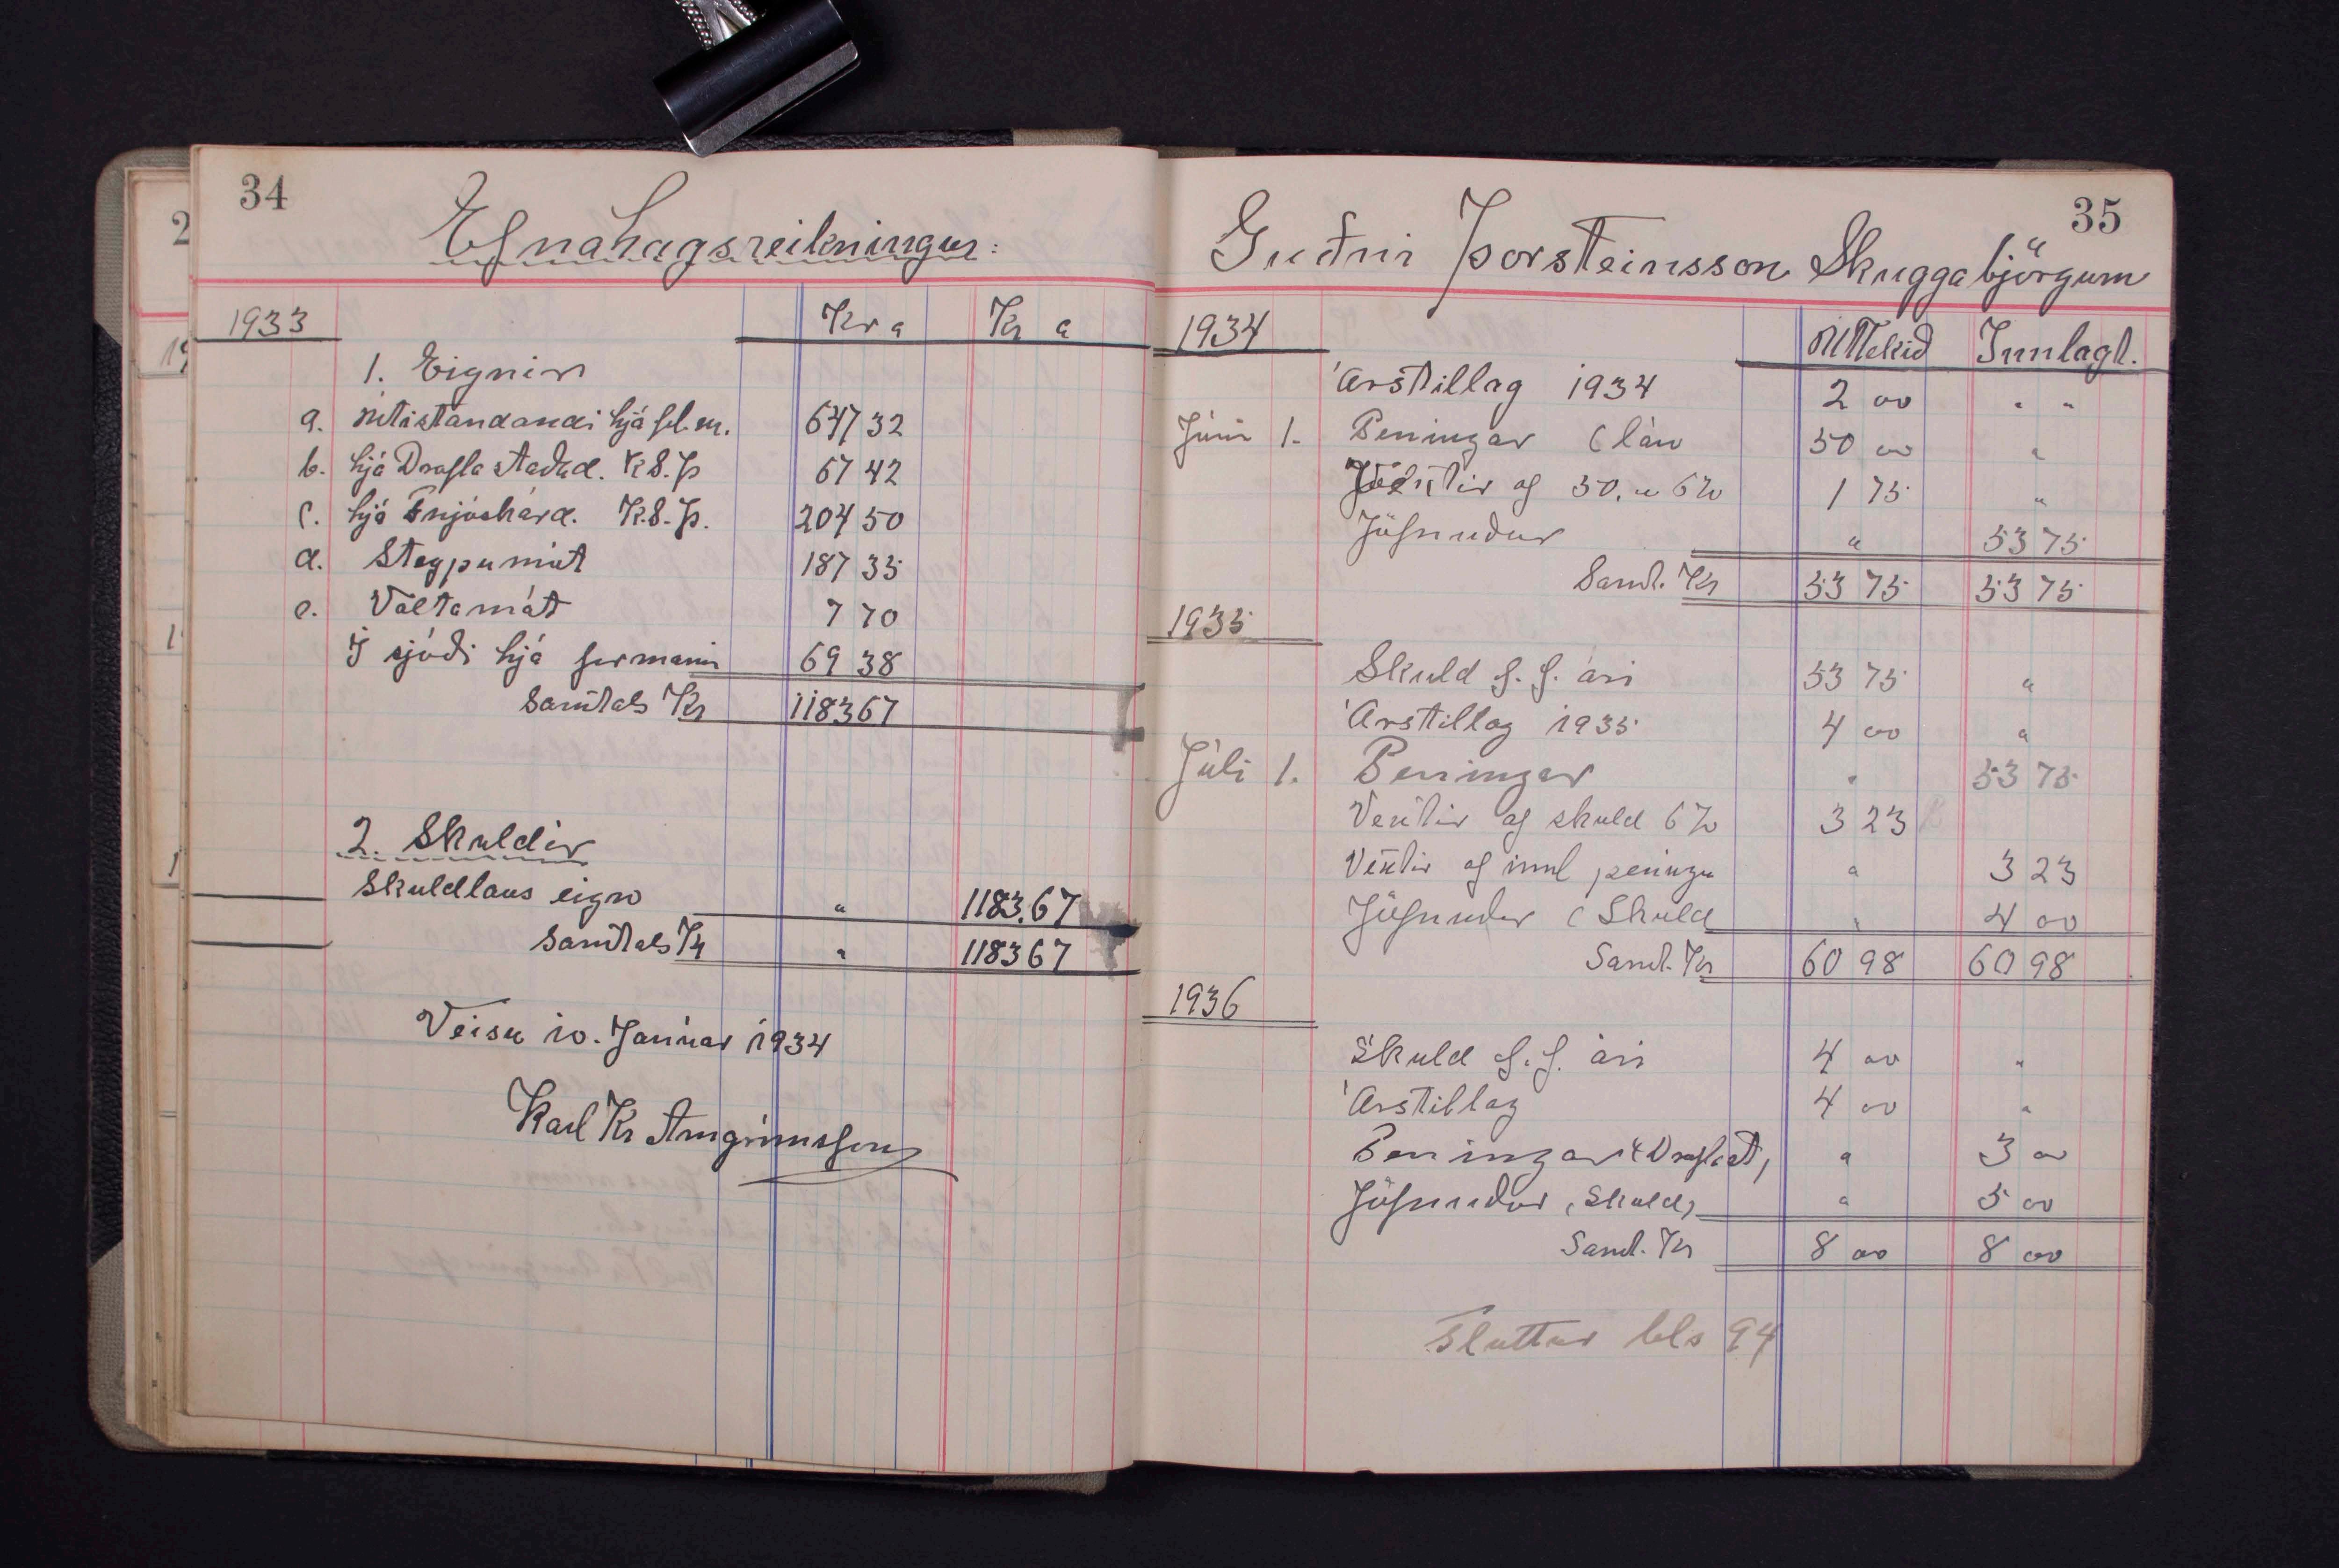 34
Efnahagsreikningur:
1933 Kr a Kr a
1. Eignir
a. útistandandi hjá fél.m. 647 32
b. hjá Draflastaðad. K.S.Þ 67 42
c. hjá Fnjóskárd. K.S.Þ. 204 50
d. Steypumót 187 35
e. Valtamát 7 70
Í sjóði hjá formanni 69 38
Samtals Kr 1183 67
2. Skuldir
Skuldlaus eign " 1183.67
Samtals Kr " 1183 67
Veisu 10. Janúar 1934
Karl Kr Arngrímsson
35
Guðni Þorsteinsson Skuggabjörgum
1934 Úttekið Innlagt.
Árstillag 1934 2 00 " "
Júní 1. Peningar (lán 50 00 "
Vextir af 50.00 6% 1 75 "
Jöfnuður " 53 75
Samt. Kr 53 75 53 75
1935
Skuld f. f. ári 53 75 "
Árstillag 1935 4 00 "
Júlí 1. Peningar " 53 75
Vextir af skuld 6% 3 23
Vextir af innl peningu " 3 23
Jöfnuður (Skuld " 4 00
Samt. Kr 60 98 60 98
1936
Skuld f. f. ári 4 00 "
Árstillag 4 00 "
Peningar " 3 00
Jöfnuður (Skuld) " 5 00
Samt. Kr 8 00 8 00
Fluttur bls 94